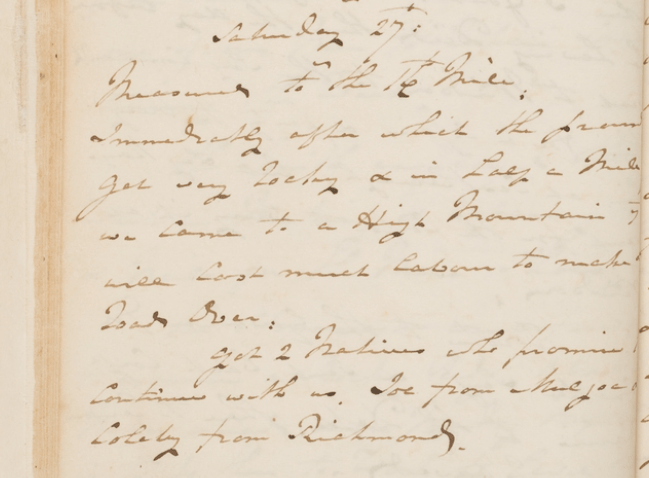 Saturday 27th:
Measured to the 16 Mile.
Immediately after which the
get very Rocky & in half a Mile
we came to a High Mountain
will Cost much Labour to make
Road Over:
got 2 Natives who promise
Continue with us. Joe from
Coleby from Richmond.